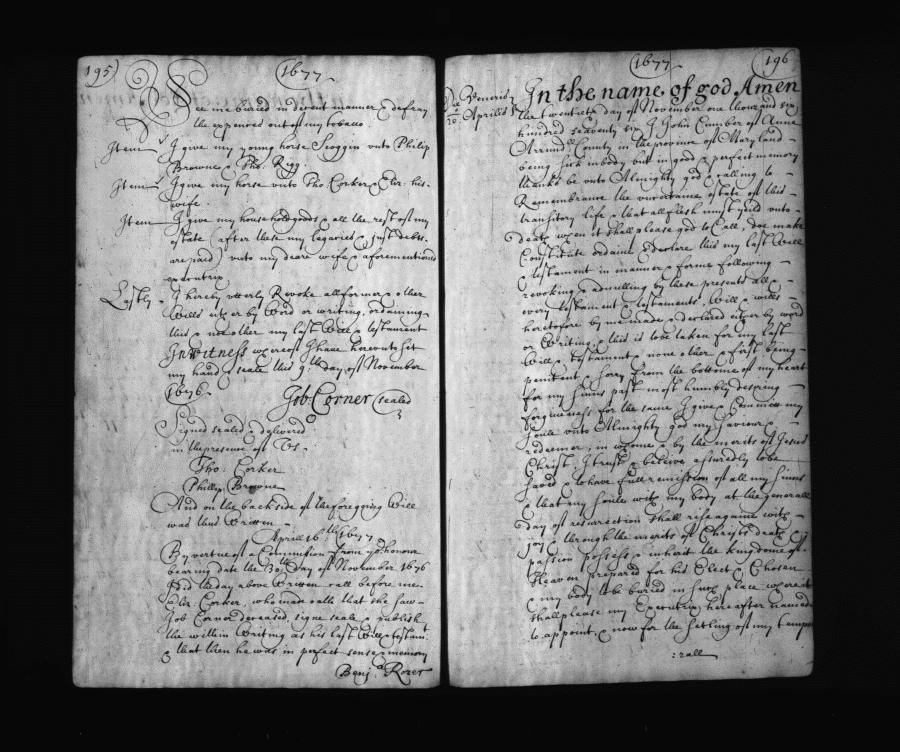 195)
1677
See me buried in decent manner & defray
the expences out of my tobacco.
Item I give my young horse Scoggin unto Philip
Browne & Tho. Rigg.
Item I give my horse unto Tho. Corker & Eliz. his
wife.
Item I give my household goods & all the rest of my
estate (after these my legacies & just debts
are paid) unto my deare wife & aforementioned
executrix
Lastly I hereby utterly Revoke all former & other
Wills eith er by Word or writing, ordaining
this & no other my last Will & testament
In witness whereof I have hereunto set
my hand & seale this 9th day of November
1676
Job Corner (sealed
Signed sealed & delivered
in the presence of Us
Tho. Corker
Phillip Browne
And on the back side of the foregoing Will
was thus Written
Aprill 16th 1677
By vertue of a Commission from yor honour
bearing date the 30th day of November 1676
Did the day above Written call before me
Eliz. Corker, who made oath that she saw
Job Corner deceased, signe seale & publish
the within Writing as his last Will & testamt
& that then he was in perfect sense & memory
Benj.a Rozer
1677
196
Die Veneris
20o Aprilis
In the name of god Amen
the twentieth day of November one thousand six
hundred seaventy six I John Cumber of Anne
Arrundll County in the province of Maryland
being sick in body but in good & perfect memory
thanks be unto Almighty god & calling to
Remembrance the uncertaine estate of this
transitory life & that all flesh must yeild unto
death when it shall please god to Call, doe make
Constitute ordaine & declare this my last Will
& testament in manner & forme following
revoking & annulling by these presents all &
every testament & testaments Will & wills
heretofore by me made & declared eith er by word
or Writing & this is to be taken for my last
Will & testament & none other & first being
penitent & sorry from the bottome of my heart
for my sinns past most humbly desiring
forgiveness for the same I give & Committ my
soule unto Almighty god my Saviour &
redeemer, in whome & by the meritts of Jesus
Christ I trust & beleive assuredly to be
saved & to have full remission of all my sinns
& that my soule with my body at the generall
day of resurrection shall rise againe with
joy & through the meritts of Christs death &
passion possess & inherit the kingdome of
Heaven prepared for his Elect & Chosen
& my body to be buried in such place where it
shall please my Executrix hereafter named
to appoint & now for the setling of my tempo
:rall